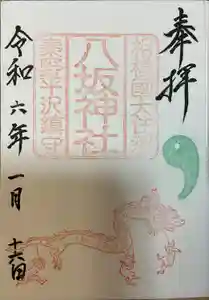 奉拝
相模國大住郡
八坂神社
平沢鎮守
令和六年
一月
十六日